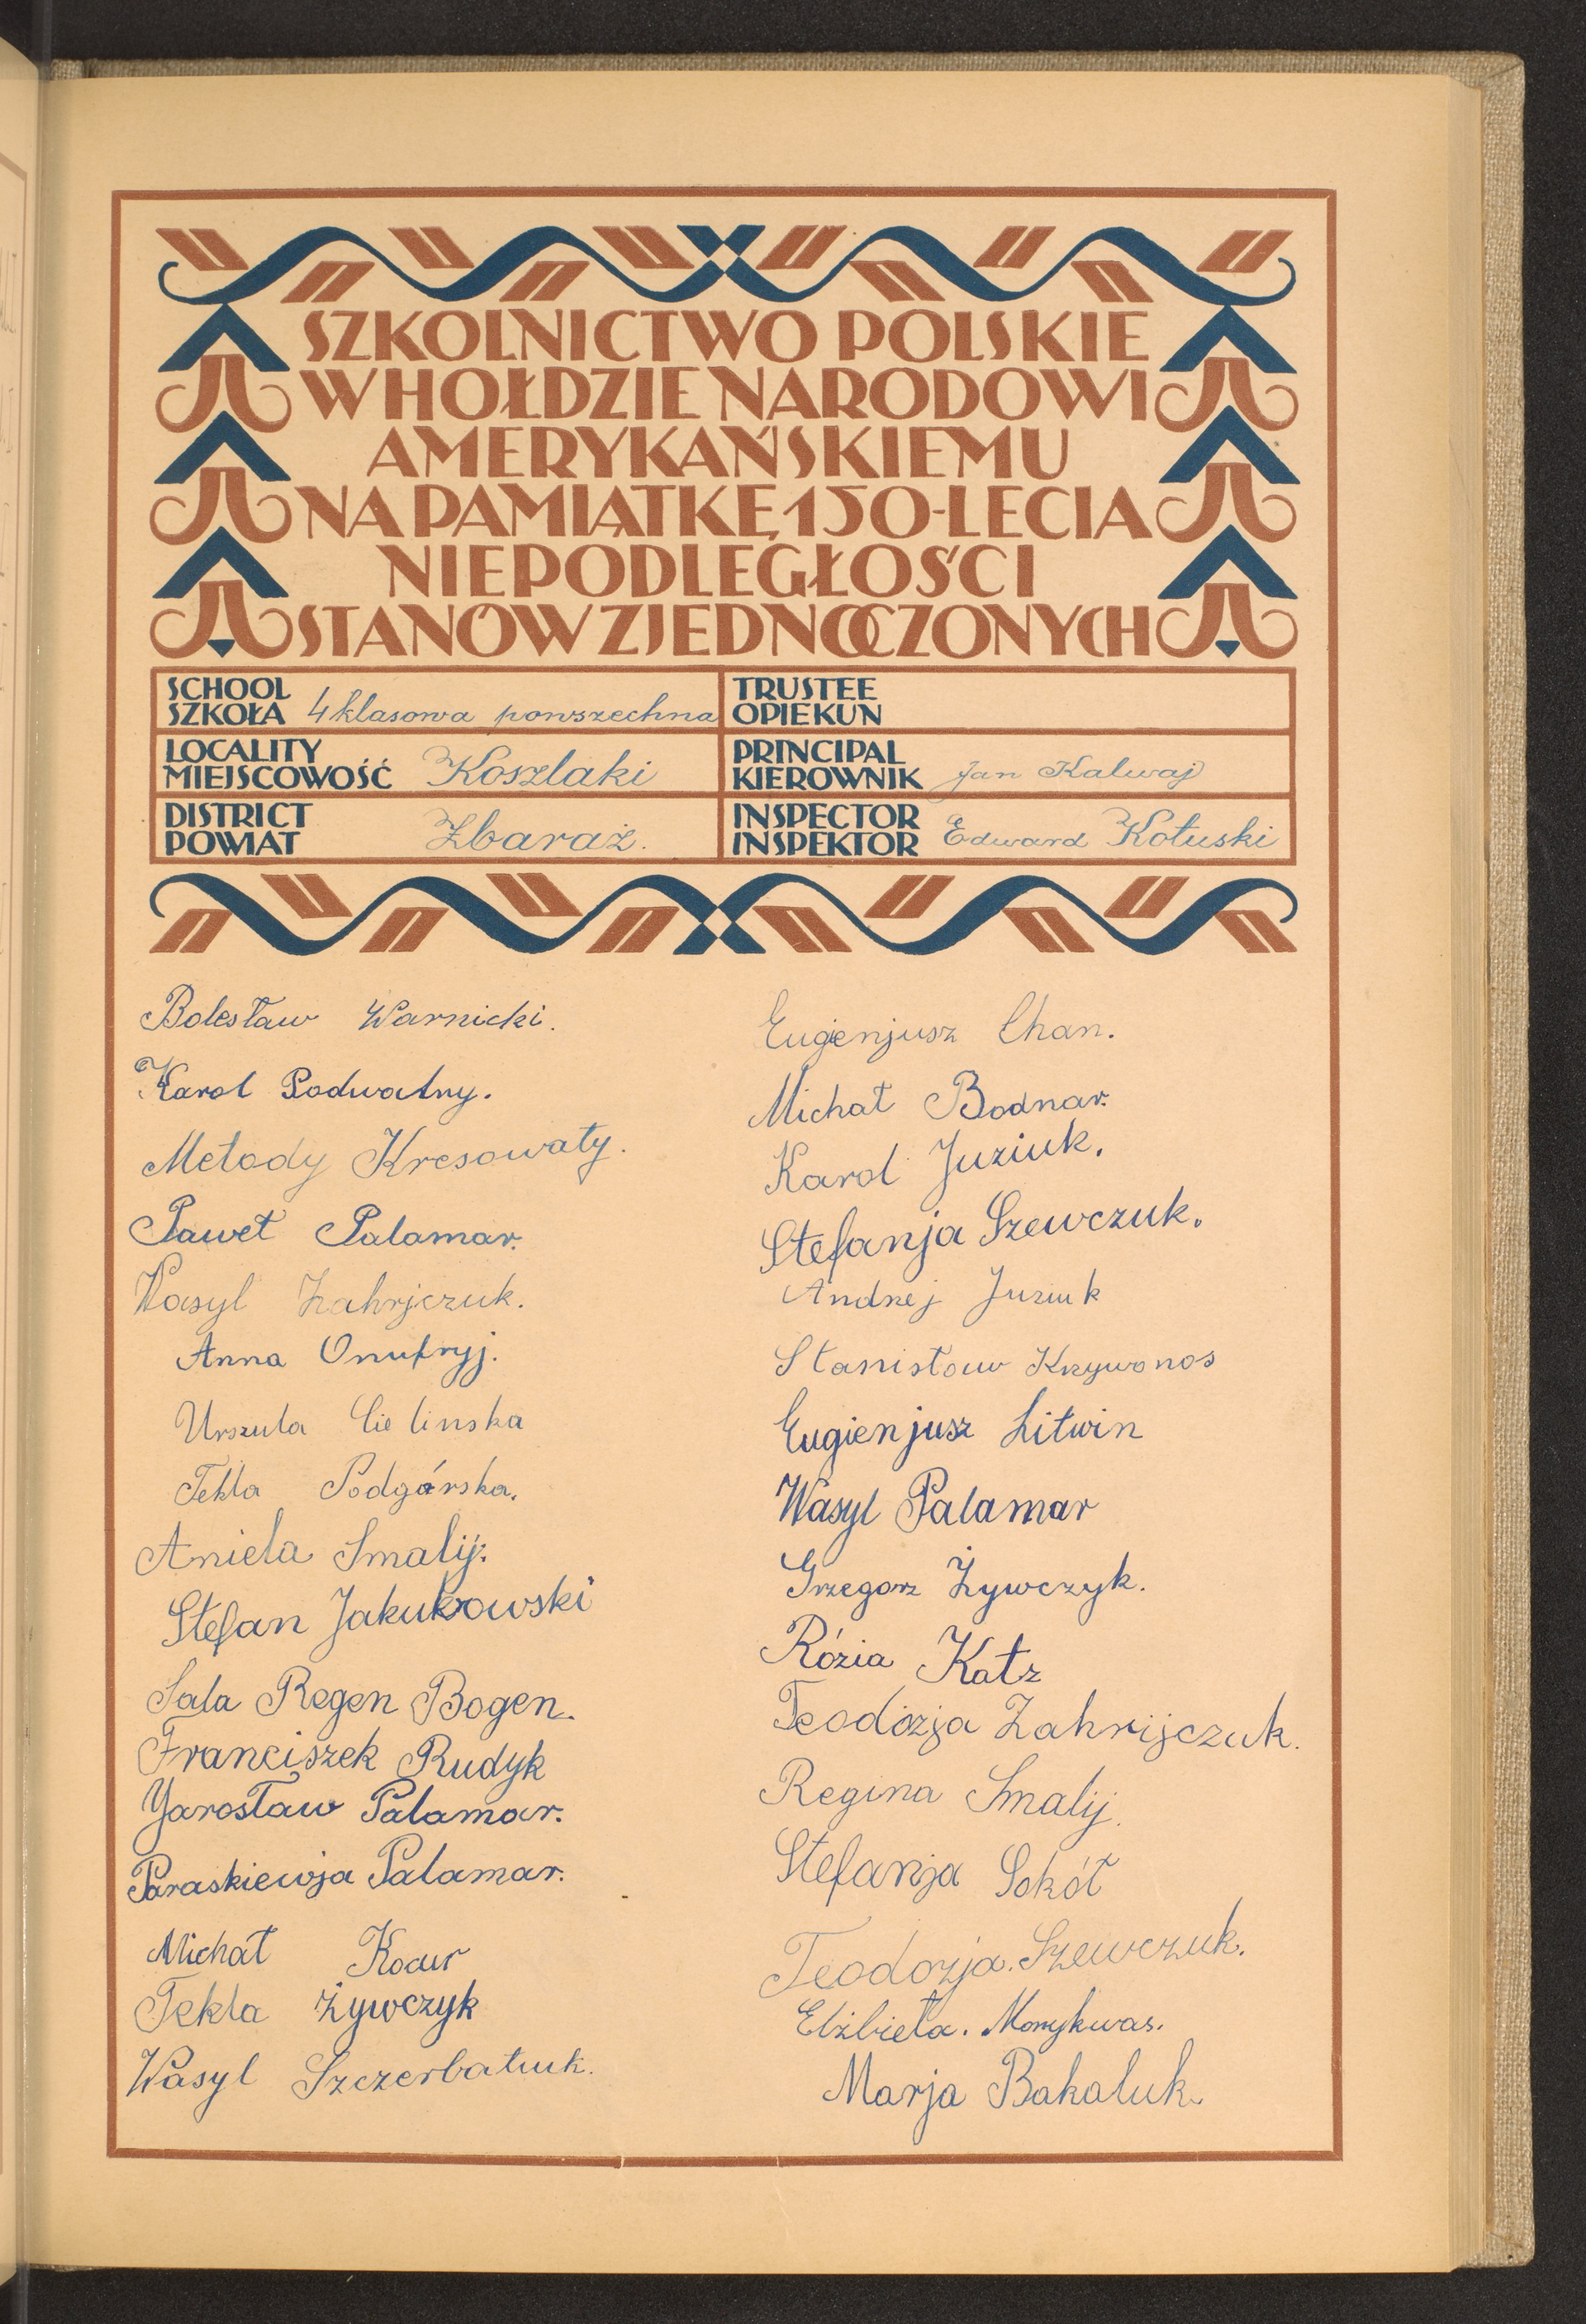 SZKOLNICTWO POLSKIE
W HOŁDZIE NARODOWI
AMERYKAŃSKIEMU
NA PAMIĄTKĘ 150-LECIA
NIEPODLEGŁOŚCI
STANÓW ZJEDNOCZONYCH
SCHOOL
SZKOŁA 4 klasowa powszechna
TRUSTEE
OPIEKUN
LOCALITY
MIEJSCOWOŚĆ Koszlaki
PRINCIPAL
KIEROWNIK Jan Kalwaj
DISTRICT
POWIAT Zbaraż.
INSPECTOR
INSPEKTOR Edward Kotuski
Bolesław Warnicki.
Karol Podwalny.
Metody Kresowaty.
Paweł Palamar.
Wasyl Zahrjczuk.
Anna Onufryj.
Urszula Cielinska
Tekla Podgórska.
Aniela Smalij.
Stefan Jakubowski
Sala Regen Bogen.
Franciszek Rudyk
Yarosław Palamar.
Paraskiewja Palamar.
Michał Kocur
Tekla Żywczyk
Wasyl Szczerbatiuk.
Eugienjusz Chan.
Michał Bodnar.
Karol Juziuk.
Stefanja Szewczuk.
Andrzej Juziuk
Stanisław Krzywonos
Eugienjusz Litwin
Wasyl Palamar
Grzegorz Żywczyk.
Rózia Katz
Teodózja Zahrijczuk.
Regina Smalij.
Stefanja Sokół
Teodozja. Szewczuk.
Elżbieta. Monykwas.
Marja Bakaluk.